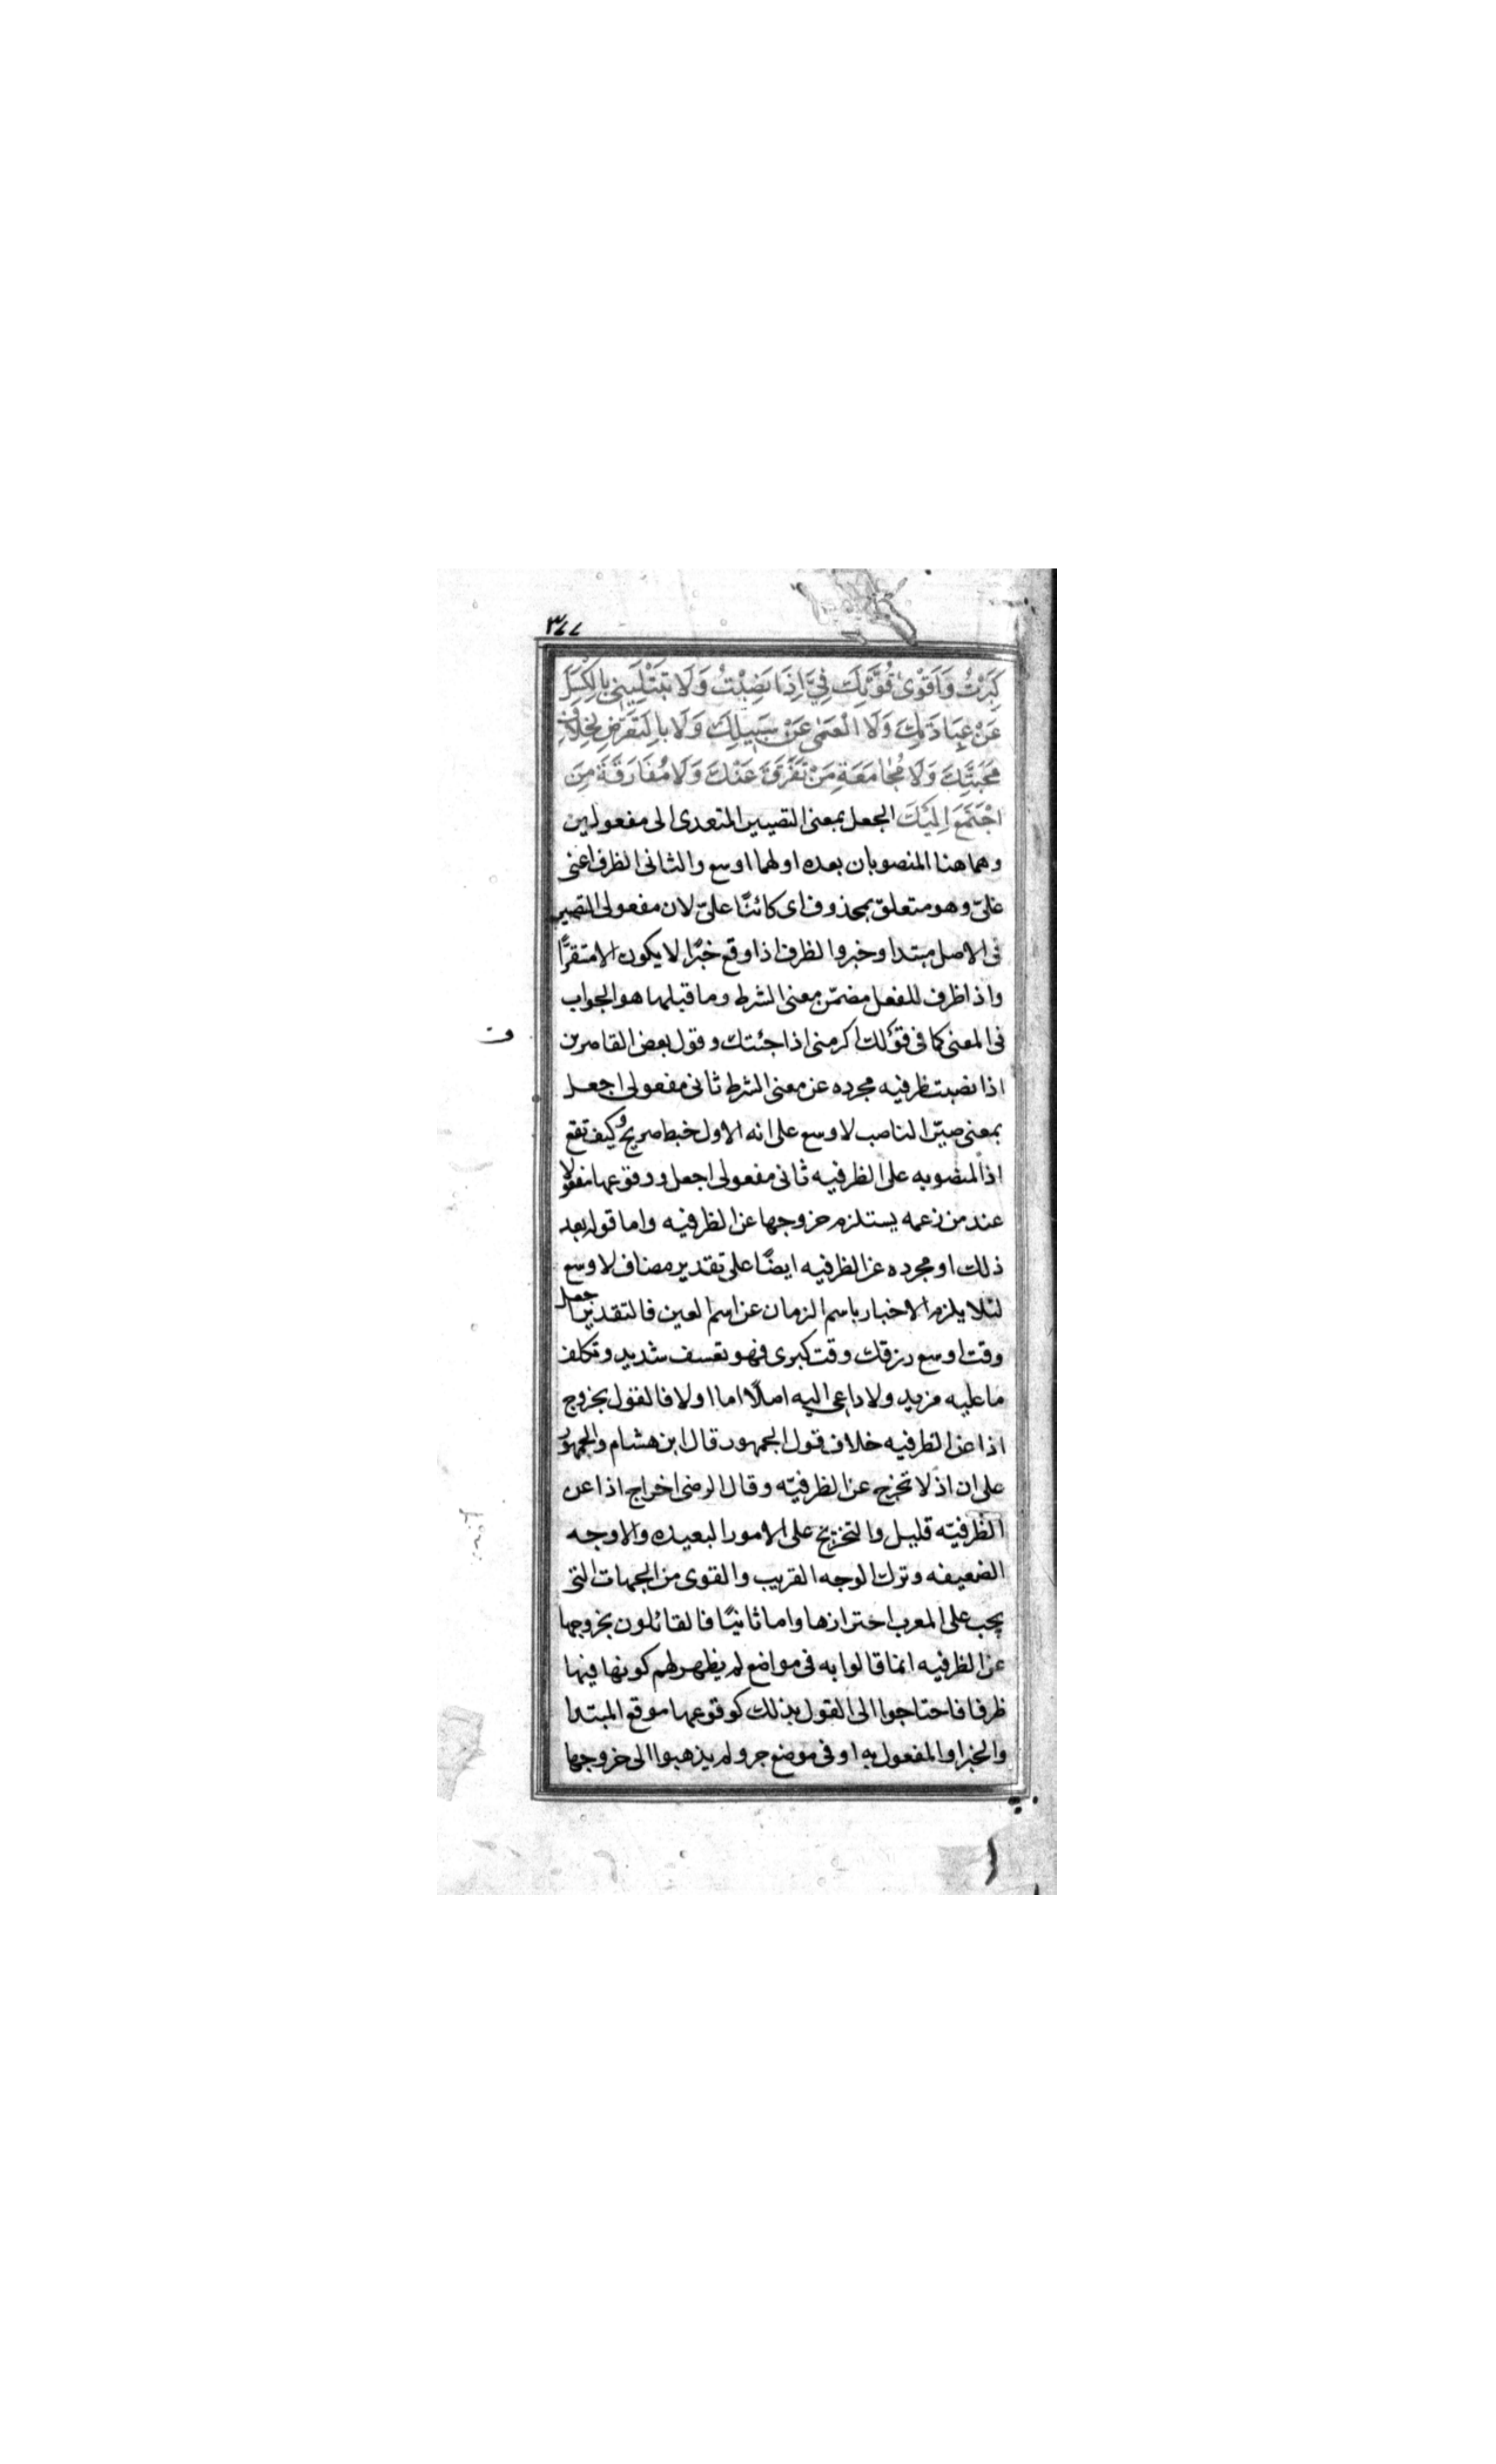 ٣٧٧
كَبِرْتُ وَاَقْوٰى قُوَّتِكَ فِيَّ اِذَا نَصِبْتُ وَلَا تَبْتَلِيَنِّى بِالْكَسَلِ
عَنْ عِبَادَتِكَ وَلَا الْعَمٰى عَنْ سَبِيلِكَ وَلَا بِالتَعَرُّضِ لِخِلَافِ
مَحَبَّتِكَ وَلَا مُجٰامَعَةِ مَنْ تَفَرَّقَ عَنْكَ وَلَا مُفَارَقَةِ مَنِ
اجْتَمَعَ اِلَيْكَ الجعل بمعنى التصيير المتعدى الى مفعولين
وهما هنا المنصوبان بعده اولهما اوسع والثانى الظرف اعنى
علىّ وهو متعلق بمحذوف اى كائنًا علىّ لان مفعولى التصيير
فى الاصل مبتدا وخبر والظرف اذا وقع خبرًا لا يكون الا مستقرًّا
واذا ظرف للفعل مضمّن معنى الشرط وما قبلها هو الجواب
فى المعنى كما فى قولك اكرمنى اذا جئتك وقول بعض القاصرين
اذا نصبت ظرفيه مجرده عن معنى الشرط ثانى مفعولى اجعل
بمعنى صيّر الناصب لاوسع على انه الاول خبط صريح وكيف تقع
اذا المنصوبه على الظرفيه ثانى مفعولى اجعل ووقوعها مفعولا
عند من زعمه يستلزم خروجها عن الظرفيه واما قوله بعد
ذلك او مجرده عن الظرفيه ايضًا على تقدير مضاف لاوسع
لئلا يلزم الاخبار باسم الزمان عن اسم العين فالتقدير اجعل
وقت اوسع رزقك وقت كبرى فهو تعسف شديد وتكلف
ما عليه مزيد ولا داعى اليه اصلًا اما اولا فالقول بخروج
اذا عن الظرفيه خلاف قول الجمهور قال ابن هشام والجمهور
على ان اذا لا تخرج عن الظرفيّه وقال الرضى اخراج اذا عن
الظرفيّه قليل والتخريج على الامور البعيده والاوجه
الضعيفه وترك الوجه القريب والقوى من الجهات التى
يجب على المعرب احترازها واما ثانيًا فالقائلون بخروجها
عن الظرفيه انما قالوا به فى مواضع لم يظهر لهم كونها فيها
ظرفا فاحتاجوا الى القول بذلك كوقوعها موقع المبتدا
والخبر او المفعول به او فى موضع جر ولم يذهبوا الى خروجها